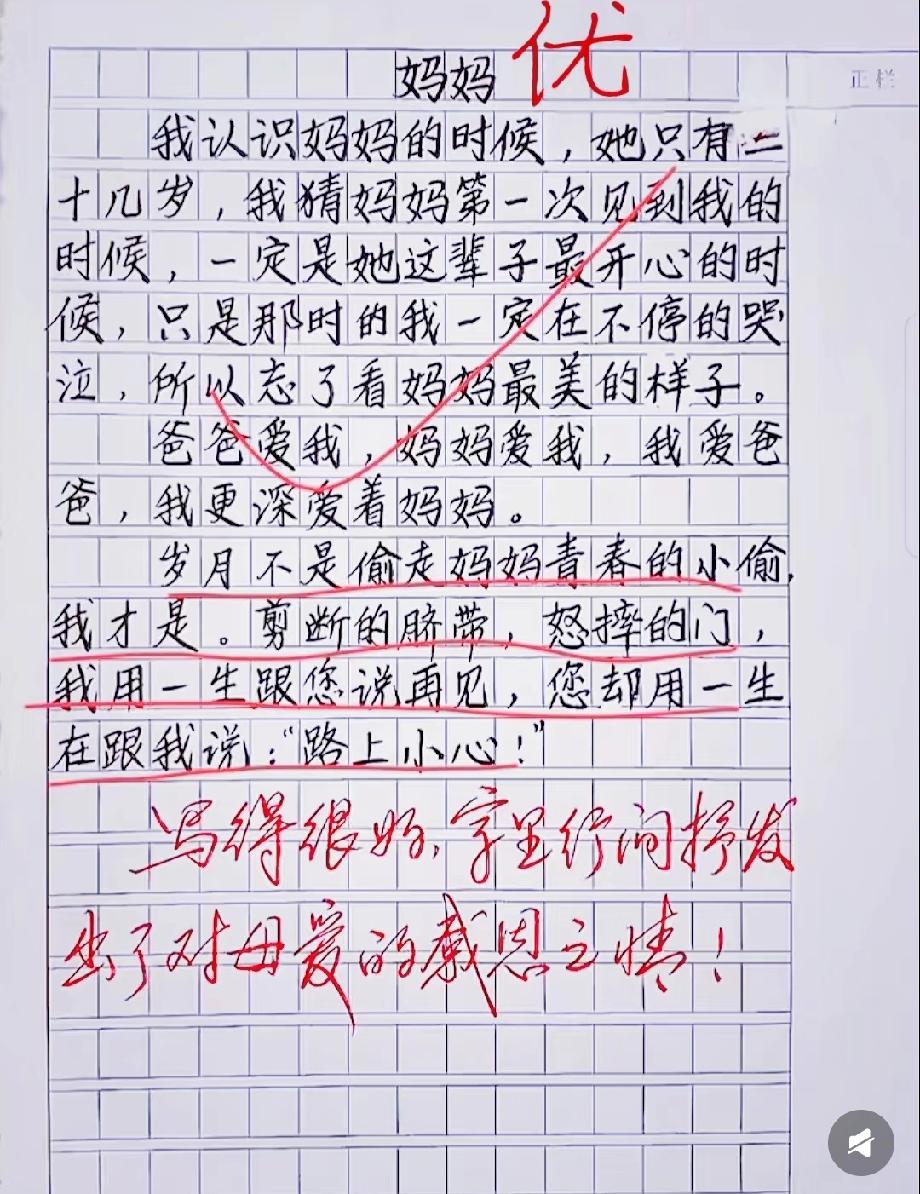 妈妈 优
正栏
我认识妈妈的时候，她只有二
十几岁，我猜妈妈第一次见到我的
时候，一定是她这辈子最开心的时
候，只是那时的我一定在不停的哭
泣，所以忘了看妈妈最美的样子。
爸爸爱我，妈妈爱我，我爱爸
爸，我更深爱着妈妈。
岁月不是偷走妈妈青春的小偷，
我才是。剪断的脐带，怒摔的门，
我用一生跟您说再见，您却用一生
在跟我说：“路上小心！”
写得很好，字里行间抒发
出了对母爱的感恩之情！